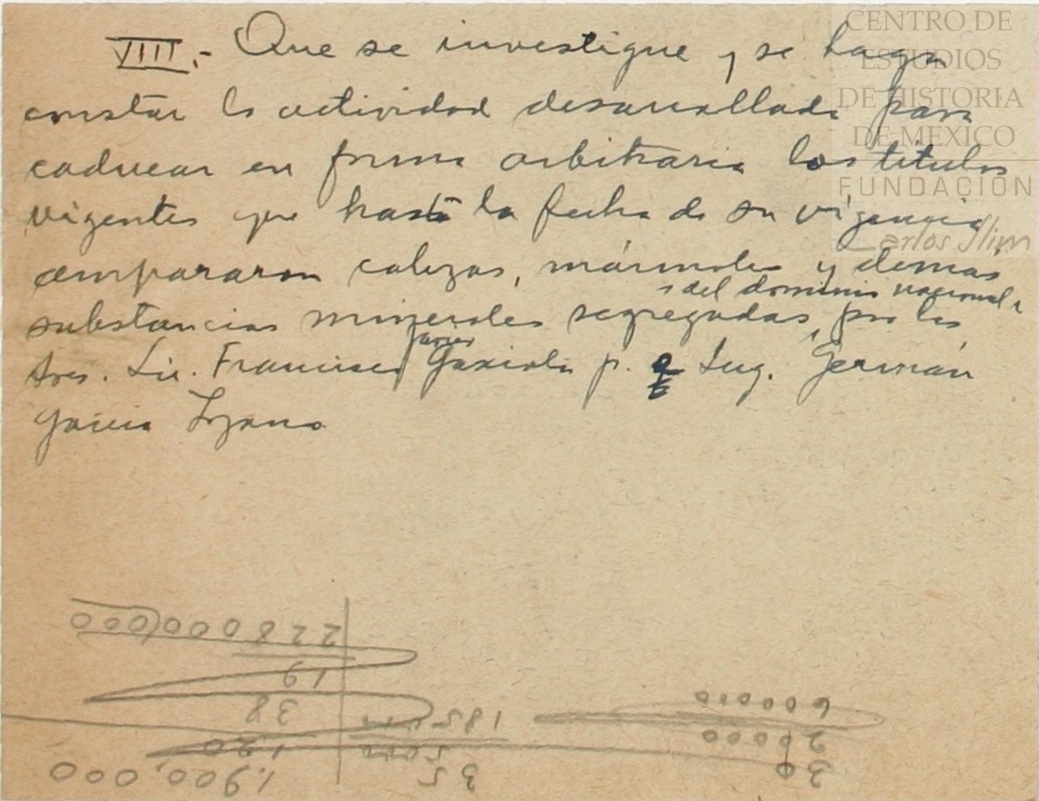 VIIII.- Que se investigue y se haga
constar la actividad desarrollada para
caducar en forma arbitraria los titulos
vigentes que hasta la fecha de su vigencia
ampararon calizas, mármoles y demás
substancias minerales segregadas, del dominio nacional, por los
Sres. Lic. Francisco Javier Gaxiola p. e Ing. Germán
Garcia Lozano
CENTRO DE
ESTUDIOS
DE HISTORIA
DE MEXICO
FUNDACIÓN
Carlos Slim
1.900,000
120
38
19
228000000
35
5000
185
30
20000
600000